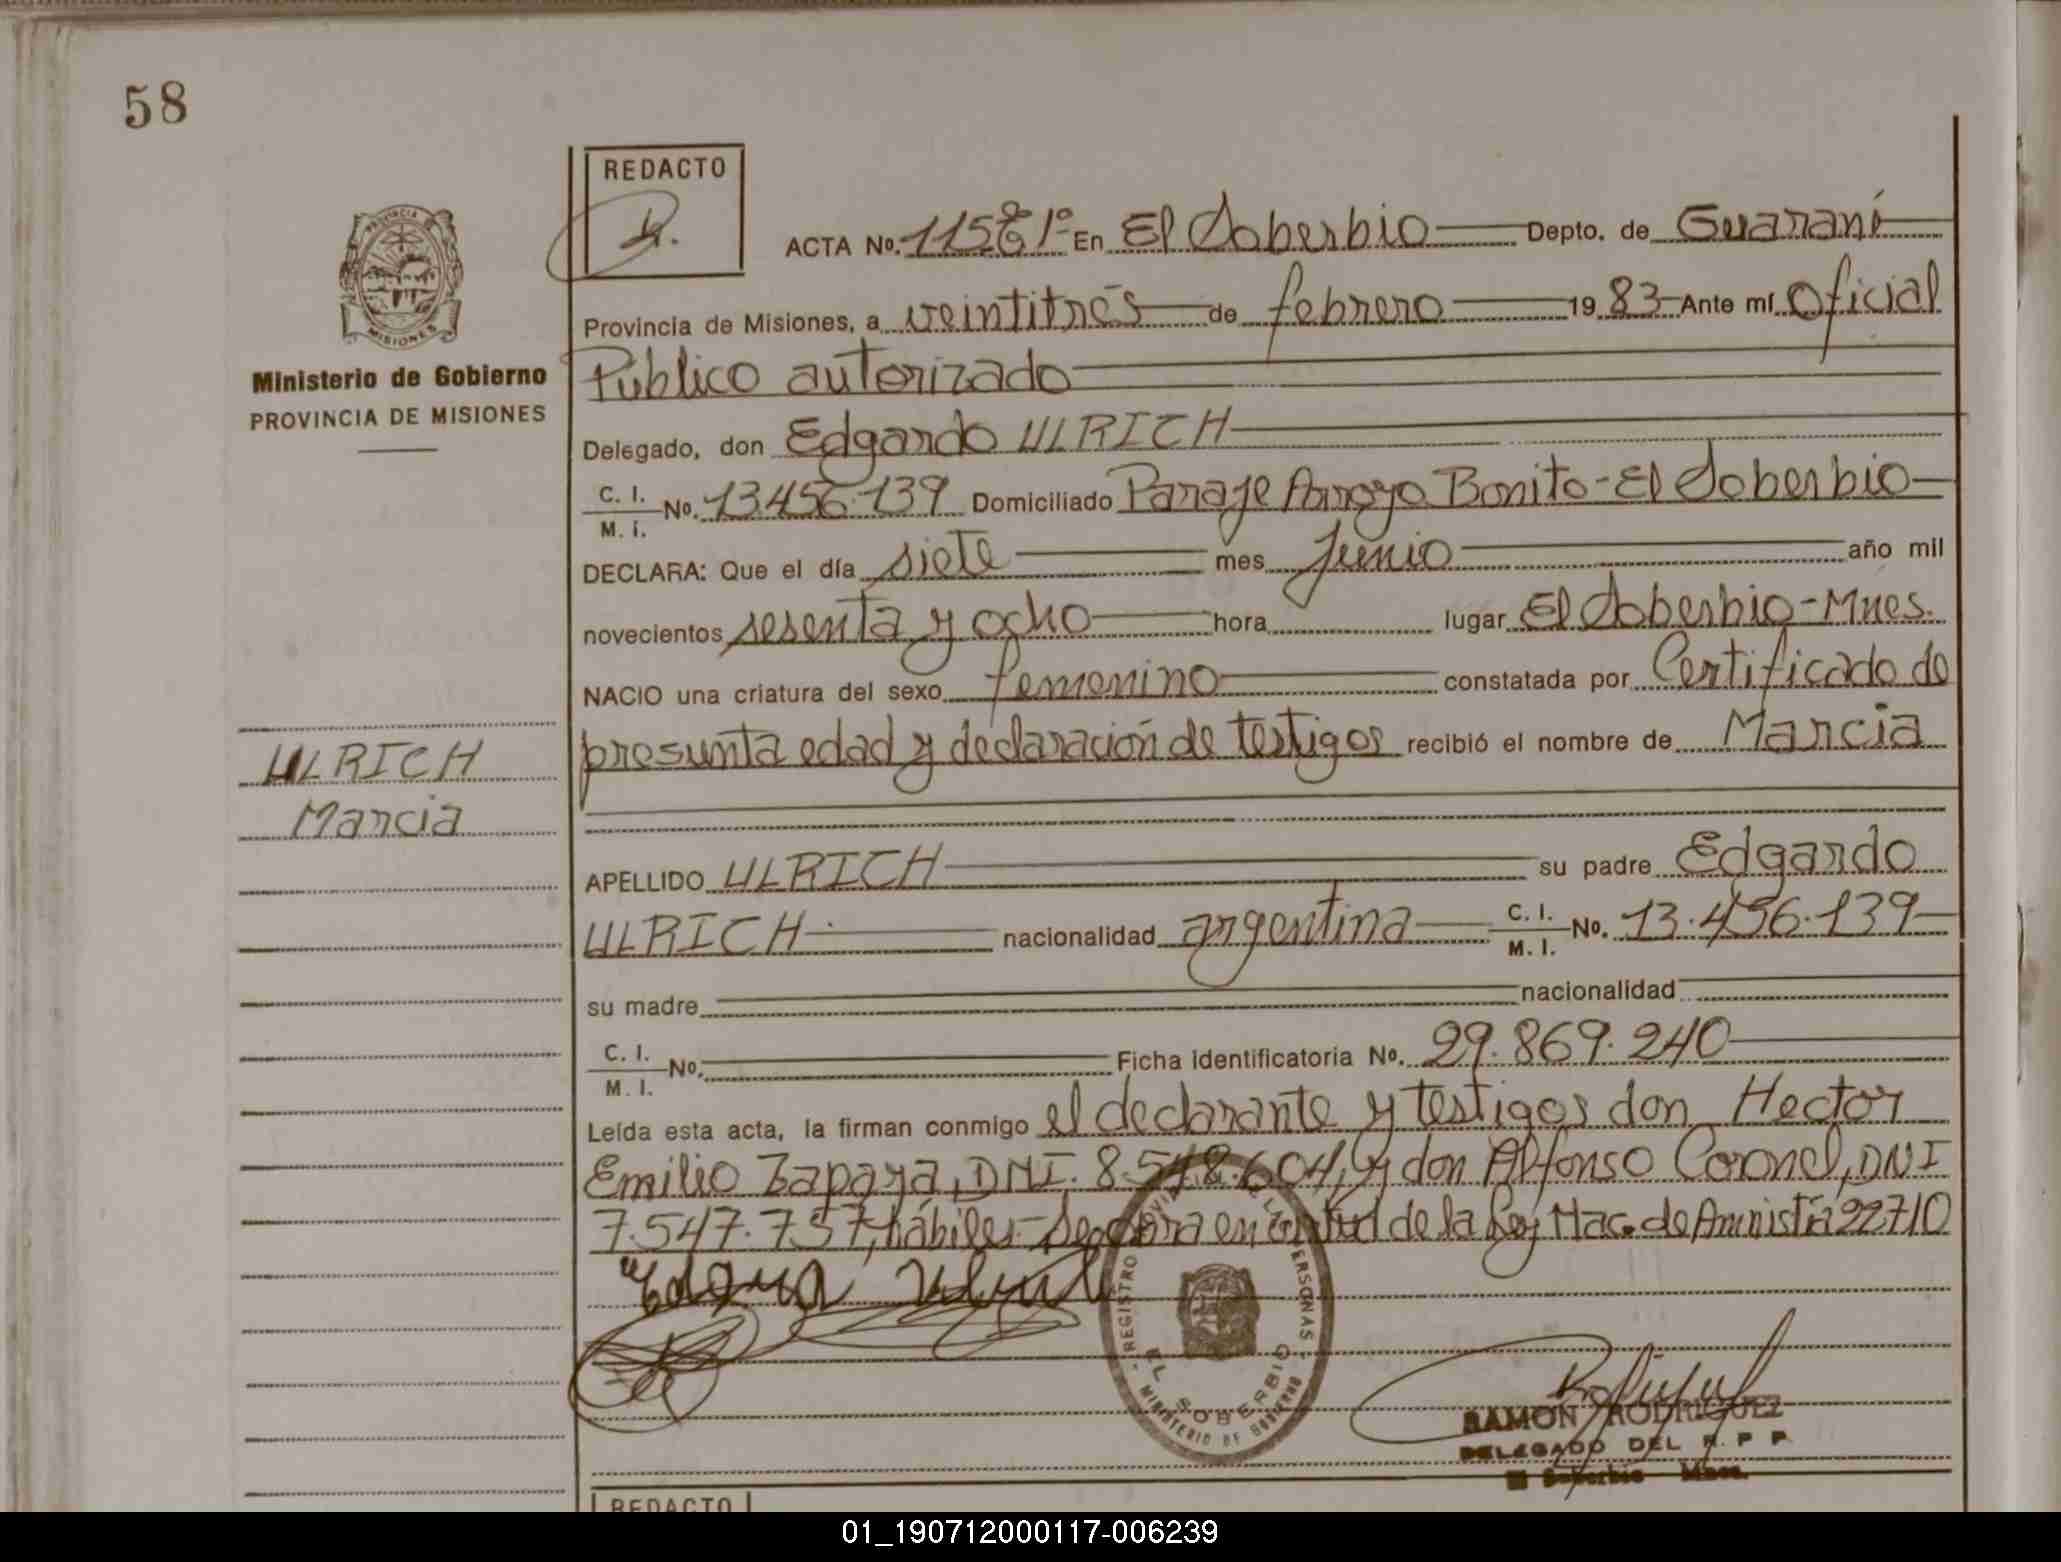 58
REDACTO
ACTA No. 115 T 1º En El Soberbio Depto. de Guaraní
PROVINCIA DE
MISIONES
Provincia de Misiones, a veintitrés de febrero 1983 Ante mí Oficial
Ministerio de Gobierno
PROVINCIA DE MISIONES
Público autorizado
Delegado, don Edgardo ULRICH
C. I.
M. I. No. 13.456.139 Domiciliado Paraje Arroyo Bonito - El Soberbio
DECLARA: Que el día siete mes junio año mil
novecientos sesenta y ocho hora lugar El Soberbio - Mnes.
NACIO una criatura del sexo femenino constatada por Certificado de
presunta edad y declaración de testigos recibió el nombre de Marcia
ULRICH
Marcia
APELLIDO ULRICH su padre Edgardo
ULRICH nacionalidad argentina C. I.
M. I. No. 13.456.139
su madre nacionalidad
C. I.
M. I. No. Ficha identificatoria No. 29.869.240
Leída esta acta, la firman conmigo el declarante y testigos don Hector
Emilio Zapaya, DNI. 8.548.604, y don Alfonso Coronel, DNI
7.547.757, hábiles. Se labra en virtud de la Ley Nac. de Amnistía 22710
REGISTRO PROVINCIAL DE LAS PERSONAS
EL SOBERBIO
MINISTERIO DE GOBIERNO
RAMON RODRIGUEZ
DELEGADO DEL R. P P
El Soberbio Mnes.
REDACTO
01_190712000117-006239